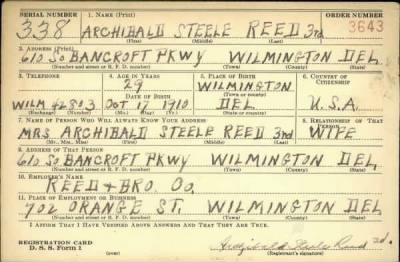 SERIAL NUMBER 1. NAME (Print) ORDER NUMBER
338 ARCHIBALD STEELE REED 3rd 3643
(First) (Middle) (Last)
2. ADDRESS (Print)
610 SO BANCROFT PKWY WILMINGTON DEL
(Number and street or R. F. D. number) (Town) (County) (State)
3. TELEPHONE 4. AGE IN YEARS 5. PLACE OF BIRTH 6. COUNTRY OF CITIZENSHIP
29 WILMINGTON
DATE OF BIRTH (Town or county)
WILM 42803 OCT 17 1910 DEL U.S.A.
(Exchange) (Number) (Mo.) (Day) (Yr.) (State or country)
7. NAME OF PERSON WHO WILL ALWAYS KNOW YOUR ADDRESS 8. RELATIONSHIP OF THAT PERSON
MRS ARCHIBALD STEELE REED 3rd WIFE
(Mr., Mrs., Miss) (First) (Middle) (Last)
9. ADDRESS OF THAT PERSON
610 SO BANCROFT PKWY WILMINGTON DEL
(Number and street or R. F. D. number) (Town) (County) (State)
10. EMPLOYER'S NAME
REED & BRO. CO.
11. PLACE OF EMPLOYMENT OR BUSINESS
702 ORANGE ST. WILMINGTON DEL
(Number and street or R. F. D. number) (Town) (County) (State)
I AFFIRM THAT I HAVE VERIFIED ABOVE ANSWERS AND THAT THEY ARE TRUE.
REGISTRATION CARD Archibald Steele Reed 3d.
D. S. S. Form 1 (over) (Registrant's signature)